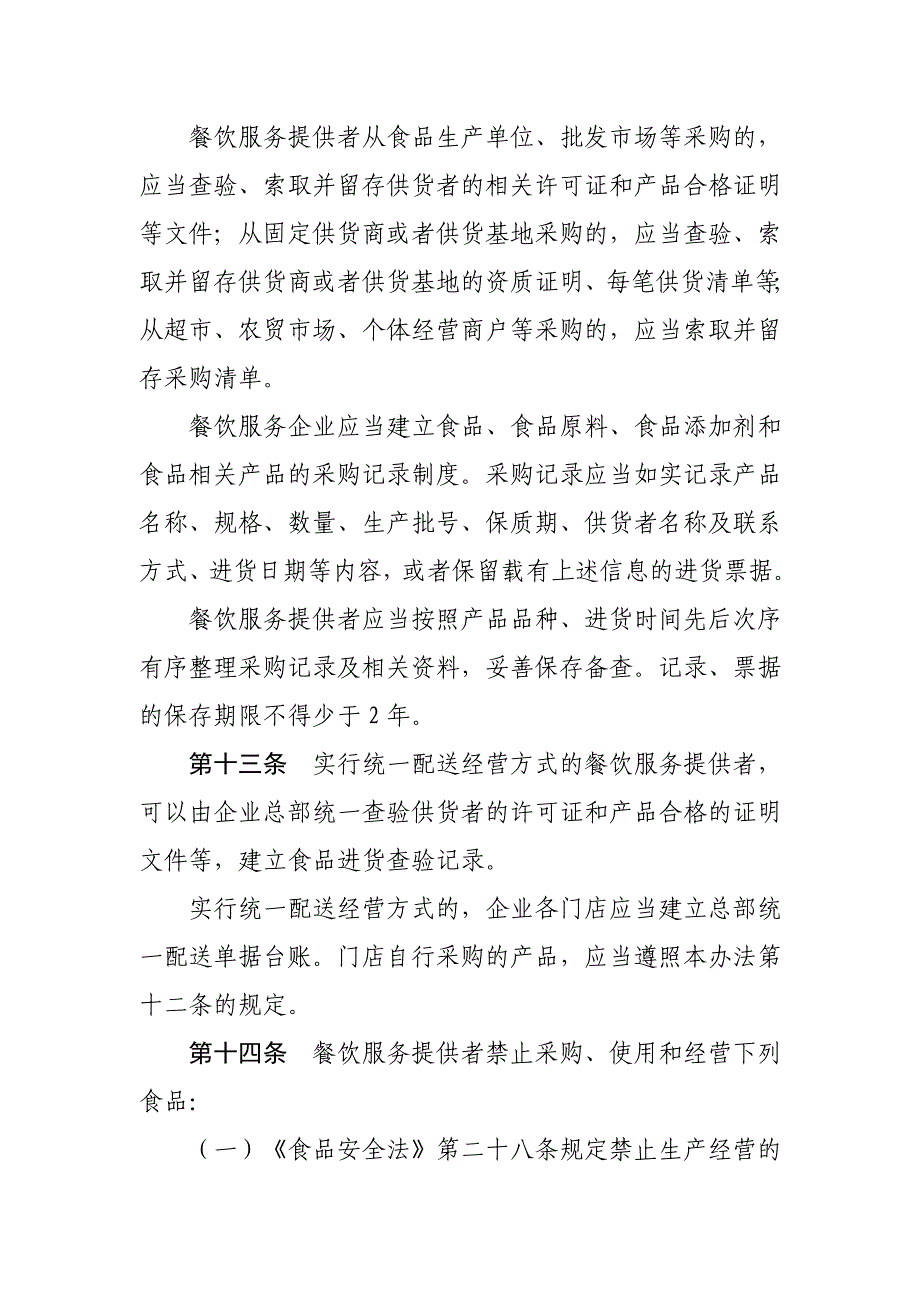 餐饮服务提供者从食品生产单位、批发市场等采购的，
应当查验、索取并留存供货者的相关许可证和产品合格证明
等文件；从固定供货商或者供货基地采购的，应当查验、索
取并留存供货商或者供货基地的资质证明、每笔供货清单等；
从超市、农贸市场、个体经营商户等采购的，应当索取并留
存采购清单。
餐饮服务企业应当建立食品、食品原料、食品添加剂和
食品相关产品的采购记录制度。采购记录应当如实记录产品
名称、规格、数量、生产批号、保质期、供货者名称及联系
方式、进货日期等内容，或者保留载有上述信息的进货票据。
餐饮服务提供者应当按照产品品种、进货时间先后次序
有序整理采购记录及相关资料，妥善保存备查。记录、票据
的保存期限不得少于2年。
第十三条　实行统一配送经营方式的餐饮服务提供者，
可以由企业总部统一查验供货者的许可证和产品合格的证明
文件等，建立食品进货查验记录。
实行统一配送经营方式的，企业各门店应当建立总部统
一配送单据台账。门店自行采购的产品，应当遵照本办法第
十二条的规定。
第十四条　餐饮服务提供者禁止采购、使用和经营下列
食品：
（一）《食品安全法》第二十八条规定禁止生产经营的